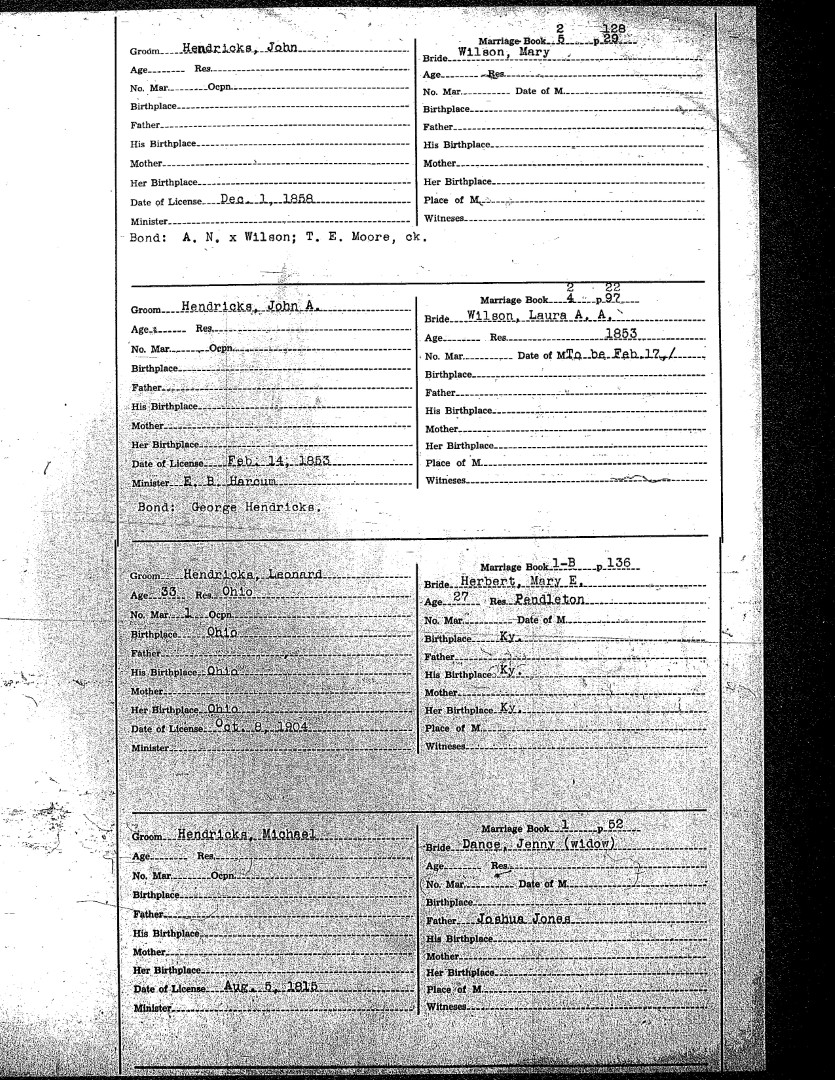 2 128
Groom Hendricks, John Marriage Book 5 p. 29
Bride Wilson, Mary
Age Res. Age Res.
No. Mar. Ocpn. No. Mar. Date of M.
Birthplace Birthplace
Father Father
His Birthplace His Birthplace
Mother Mother
Her Birthplace Her Birthplace
Date of License Dec. 1, 1858 Place of M.
Minister Witneses
Bond: A. N. x Wilson; T. E. Moore, ck.
2 22
Groom Hendricks, John A. Marriage Book 4 p. 97
Bride Wilson, Laura A. A.
Age Res. Age Res. 1853
No. Mar. Ocpn. No. Mar. Date of M To be Feb. 17, /
Birthplace Birthplace
Father Father
His Birthplace His Birthplace
Mother Mother
Her Birthplace Her Birthplace
Date of License Feb. 14, 1853 Place of M.
Minister E. B. Harcum Witneses
Bond: George Hendricks.
Groom Hendricks, Leonard Marriage Book 1-B p. 136
Bride Herbert, Mary E.
Age 33 Res. Ohio Age 27 Res. Pendleton
No. Mar. 1 Ocpn. No. Mar. Date of M.
Birthplace Ohio Birthplace Ky.
Father Father
His Birthplace Ohio His Birthplace Ky.
Mother Mother
Her Birthplace Ohio Her Birthplace Ky.
Date of License Oct. 8, 1904 Place of M.
Minister Witneses
Groom Hendricks, Michael Marriage Book 1 p. 52
Bride Dance, Jenny (widow)
Age Res. Age Res.
No. Mar. Ocpn. No. Mar. Date of M.
Birthplace Birthplace
Father Father Joshua Jones
His Birthplace His Birthplace
Mother Mother
Her Birthplace Her Birthplace
Date of License Aug. 5, 1815 Place of M.
Minister Witneses